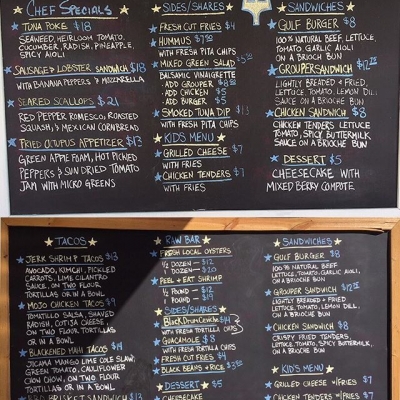 CHEF SPECIALS
TUNA POKE $18
SEAWEED, HEIRLOOM TOMATO,
CUCUMBER, RADISH, PINEAPPLE,
SPICY AIOLI
SAUSAGE & LOBSTER SANDWICH $18
WITH BANANA PEPPERS & MOZZARELLA
SEARED SCALLOPS $21
RED PEPPER ROMESCO, ROASTED
SQUASH, & MEXICAN CORNBREAD
FRIED OCTOPUS APPETIZER $13
GREEN APPLE FOAM, HOT PICKLED
PEPPERS & SUN DRIED TOMATO
JAM WITH MICRO GREENS
SIDES/SHARES
FRESH CUT FRIES $4
HUMMUS
WITH FRESH PITA CHIPS
MIXED GREEN SALAD
BALSAMIC VINAIGRETTE
- ADD GROUPER $8
- ADD CHICKEN $5
- ADD BURGER $5
SMOKED TUNA DIP $13
WITH FRESH PITA CHIPS
KIDS MENU
GRILLED CHEESE $7
WITH FRIES
CHICKEN TENDERS $7
WITH FRIES
SANDWICHES
GULF BURGER $8
100% NATURAL BEEF LETTUCE,
TOMATO, GARLIC AIOLI
ON A BRIOCHE BUN
GROUPER SANDWICH
LIGHTLY BREADED & FRIED
LETTUCE, TOMATO, LEMON DILL
SAUCE ON A BRIOCHE BUN
CHICKEN SANDWICH $8
CHICKEN TENDERS LETTUCE
TOMATO, SPICY BUTTERMILK
SAUCE ON A BRIOCHE BUN
DESSERT $5
CHEESECAKE WITH
MIXED BERRY COMPOTE
TACOS
JERK SHRIMP TACOS $13
AVOCADO, KIMCHI, PICKLED
CARROTS, LIME CILANTRO
SAUCE, ON TWO FLOUR
TORTILLAS OR IN A BOWL
MOJO CHICKEN TACOS $9
TOMATILLO SALSA, SHAVED
RADISH, COTIJA CHEESE,
ON TWO FLOUR TORTILLAS
OR IN A BOWL
BLACKENED MAHI TACOS $14
JICAMA MANGO LIME COLE SLAW,
GREEN TOMATO, CAULIFLOWER
CHOW CHOW, ON TWO FLOUR
TORTILLAS OR IN A BOWL
BRISKET SANDWICH $13
RAW BAR
FRESH LOCAL OYSTERS
1/2 DOZEN - $12
1 DOZEN - $20
PEEL & EAT SHRIMP
1/2 POUND - $12
1 POUND - $19
SIDES/SHARES
BLACK DRUM CEVICHE
WITH FRESH TORTILLA CHIPS
GUACAMOLE $8
WITH FRESH TORTILLA CHIPS
FRESH CUT FRIES $4
BLACK BEANS & RICE
DESSERT $5
CHEESECAKE
SANDWICHES
GULF BURGER $8
100% NATURAL BEEF
LETTUCE, TOMATO, GARLIC AIOLI
ON A BRIOCHE BUN
GROUPER SANDWICH
LIGHTLY BREADED & FRIED
LETTUCE, TOMATO, LEMON DILL
SAUCE, ON A BRIOCHE BUN
CHICKEN SANDWICH $8
CRISPY FRIED TENDERS
LETTUCE, TOMATO, SPICY BUTTERMILK,
ON A BRIOCHE BUN
KIDS MENU
GRILLED CHEESE W/FRIES $7
CHICKEN TENDERS W/FRIES $7